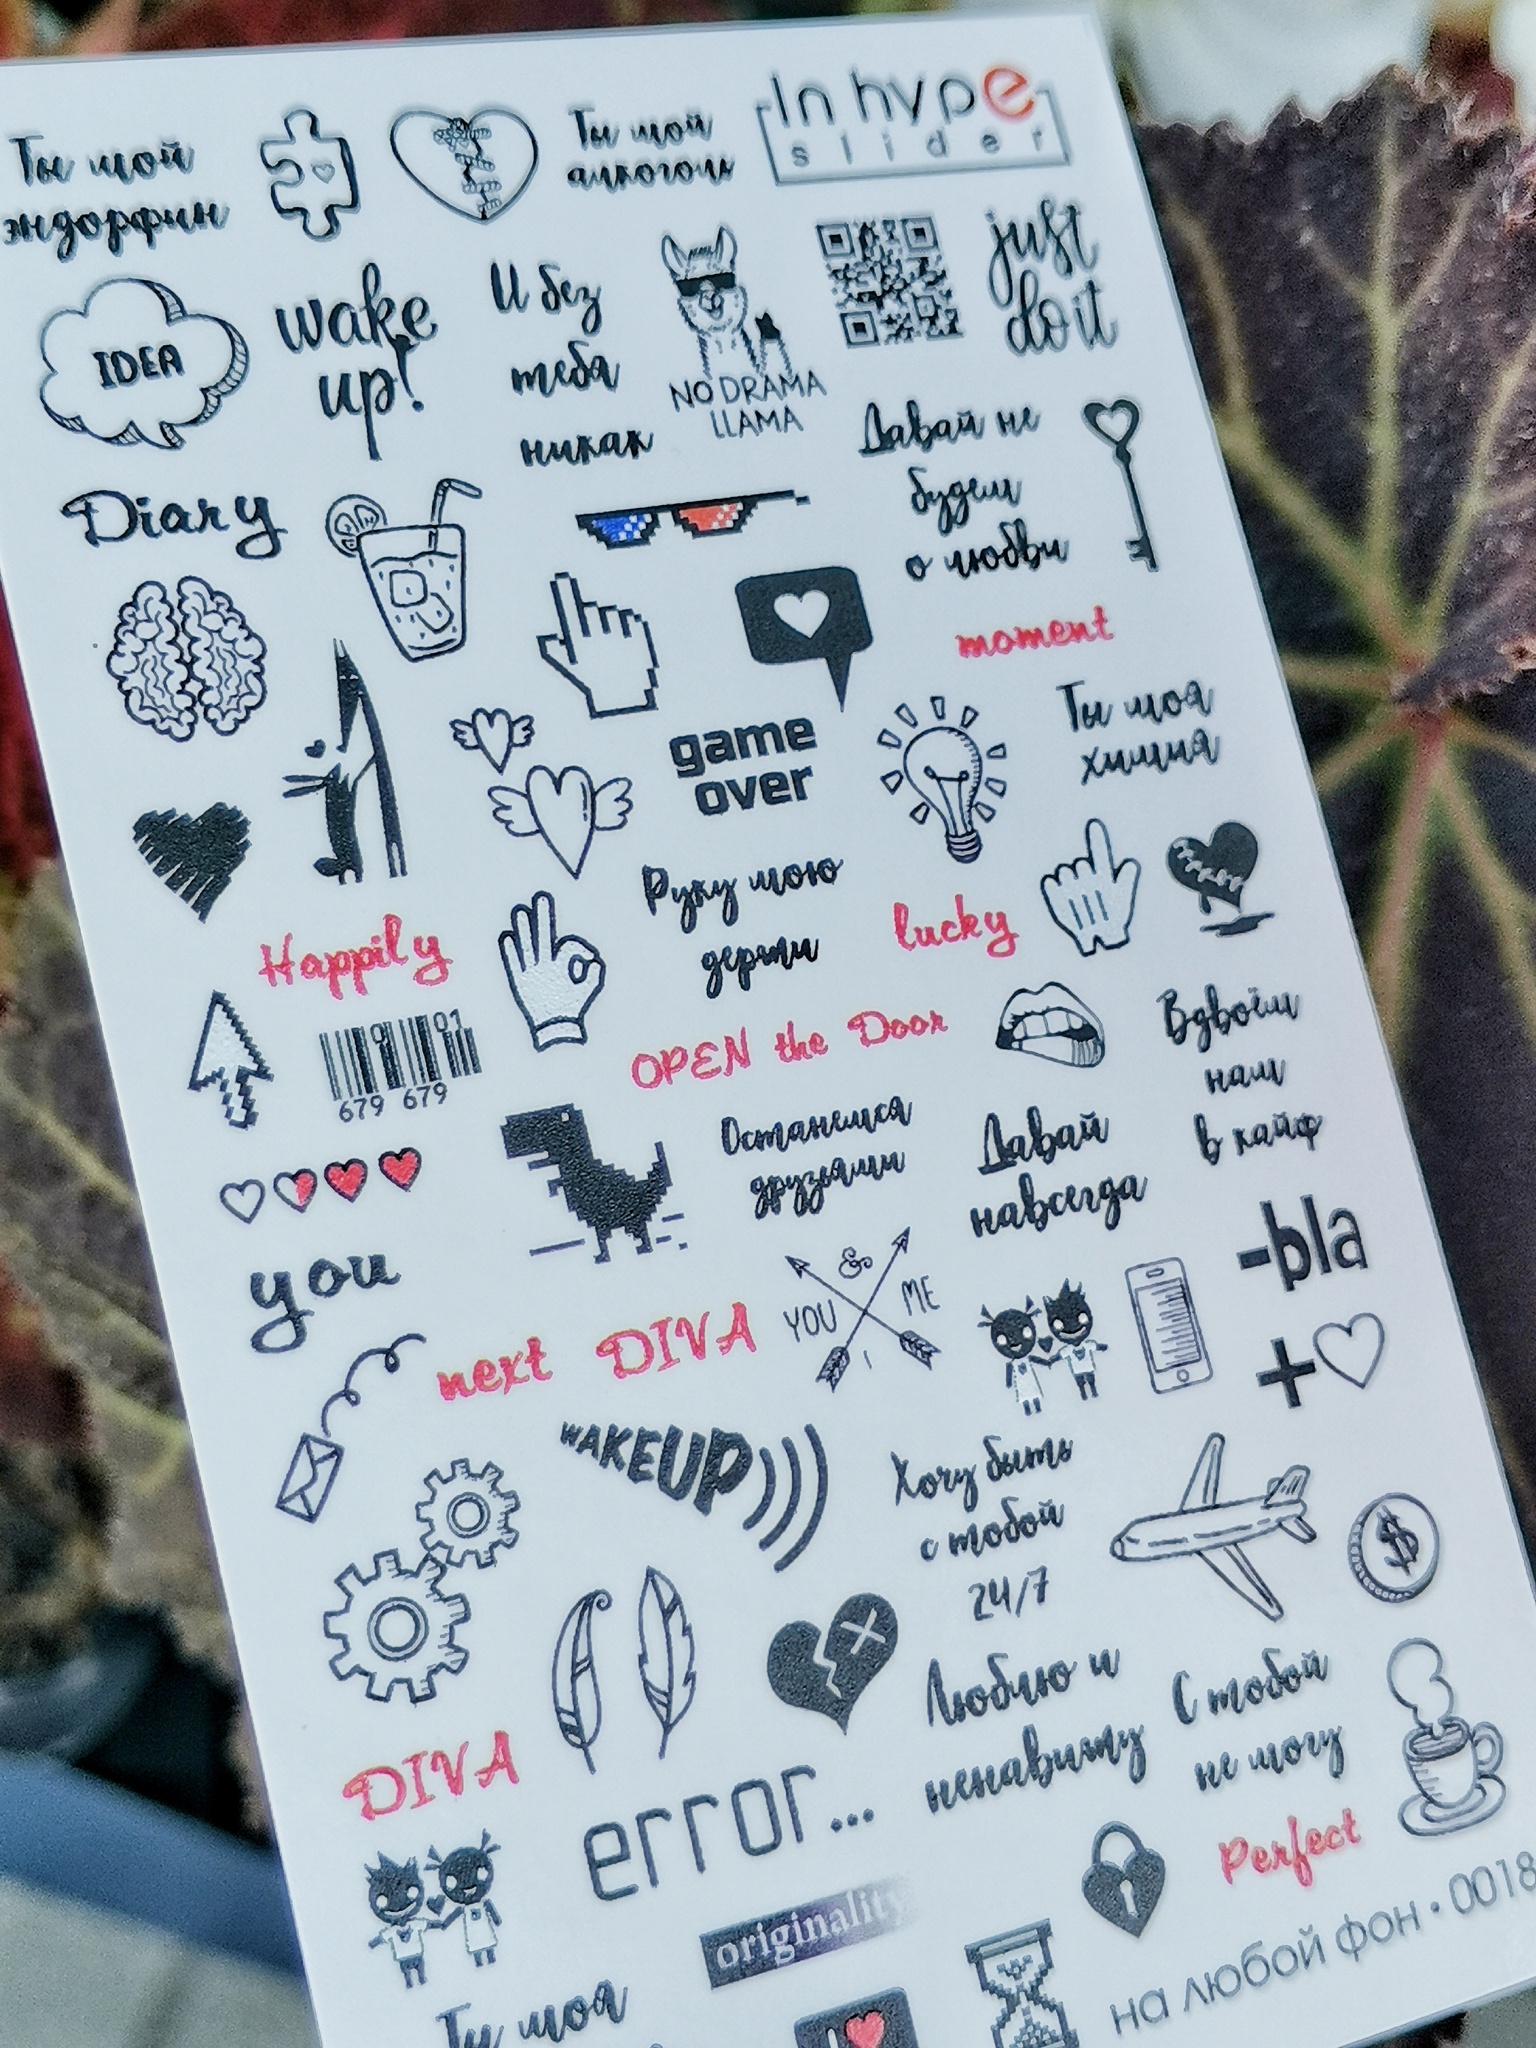 In hype
slider
Ты мой
эндорфин
Ты мой
алкоголь
IDEA
wake
up!
И без
тебя
никак
NO DRAMA
LLAMA
just
do it
Diary
Давай не
будем
о любви
moment
game
over
Ты моя
химия
Happily
Руку мою
держи
lucky
01
679 679
OPEN the Door
Вдвоём
нам
в кайф
Останемся
друзьями
Давай
навсегда
you
next DIVA
&
YOU ME
-bla
+
WAKEUP
Хочу быть
с тобой
24/7
$
DIVA
error...
Люблю и
ненавижу
С тобой
не могу
Perfect
originality
Ты моя
I
на любой фон • 0018